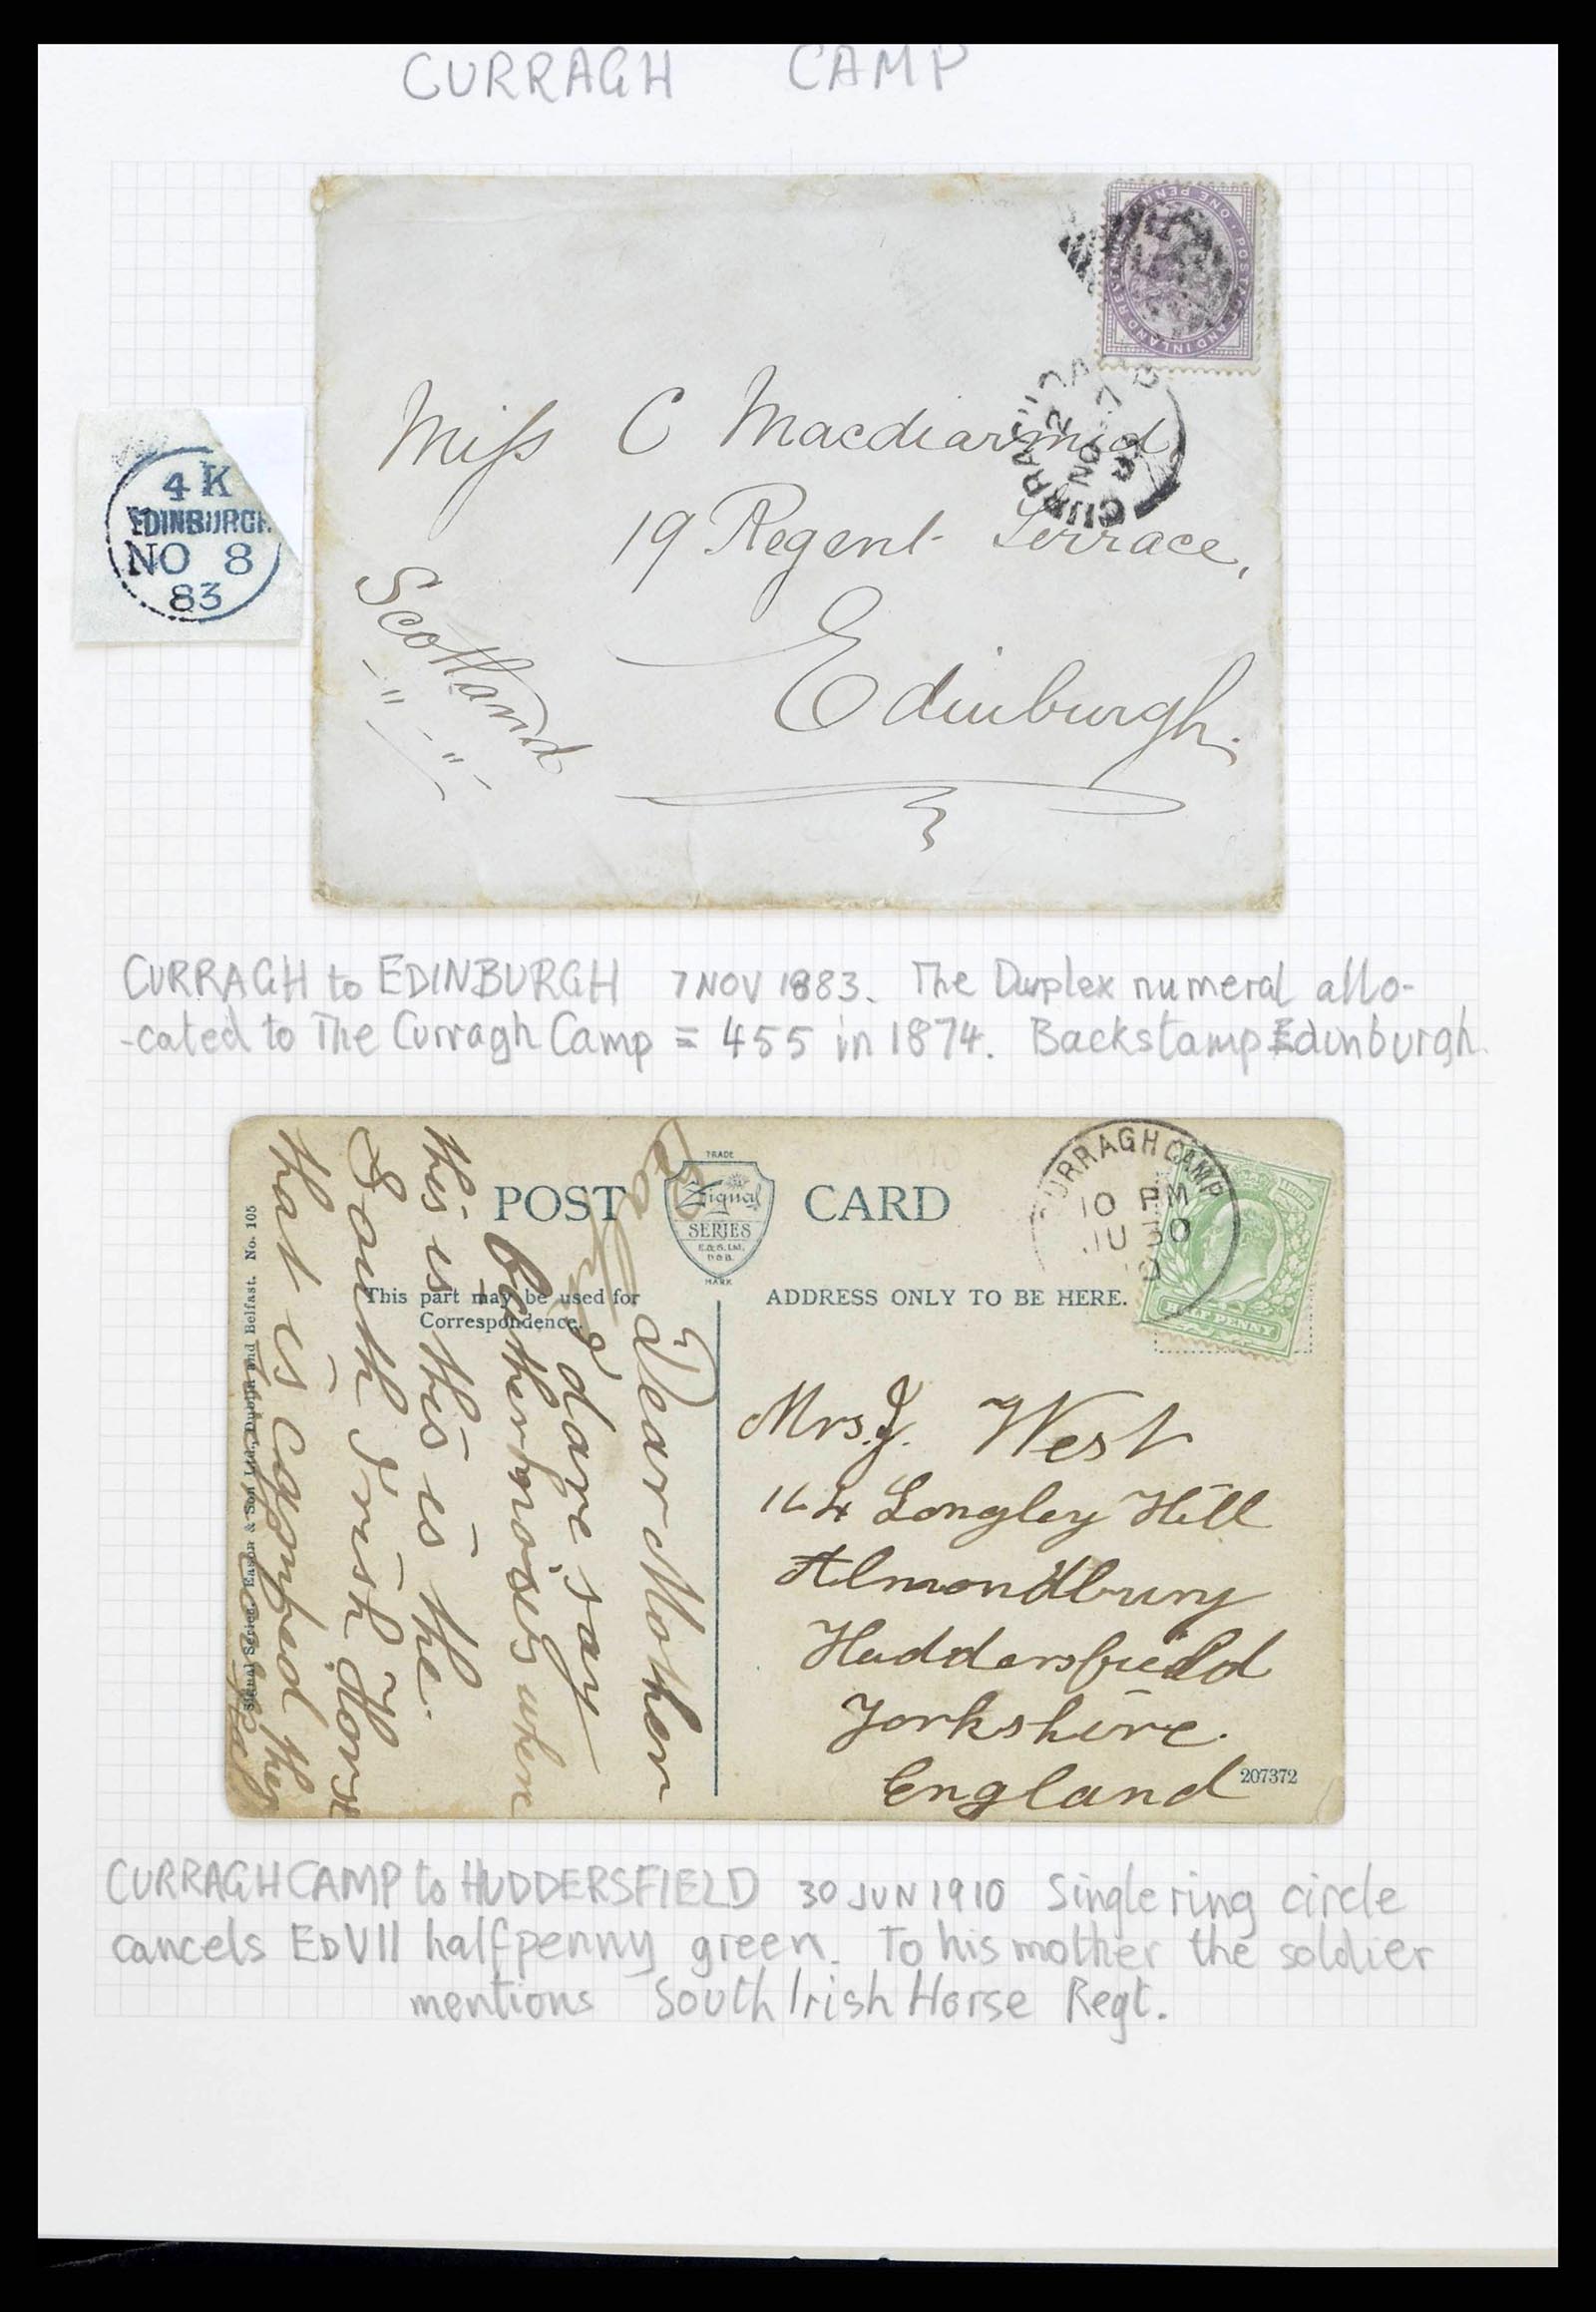 CURRAGH CAMP
POSTAGE AND INLAND REVENUE · ONE PENNY
CURRAGH CAMP
NO 7
83
4 K
EDINBURGH
NO 8
83
Miss C Macdiarmid
19 Regent Terrace,
Edinburgh.
Scotland
CURRAGH to EDINBURGH 7 NOV 1883. The Duplex numeral allo-
-cated to The Curragh Camp = 455 in 1874. Backstamp Edinburgh.
POST CARD
TRADE
Signal
SERIES
E.& S. Ltd.
D & B.
MARK
This part may be used for
Correspondence.
ADDRESS ONLY TO BE HERE.
CURRAGH CAMP
10 PM
JU 30
10
HALF PENNY
Signal Series, Eason & Son Ltd., Dublin and Belfast. No. 105
Dear Mother
dare say
when
this is this is the
South Irish Horse
that is they
Mrs. J. West
164 Longley Hill
Almondbury
Huddersfield
Yorkshire.
England
207372
CURRAGH CAMP to HUDDERSFIELD 30 JUN 1910 Single ring circle
cancels EDVII halfpenny green. To his mother the soldier
mentions South Irish Horse Regt.